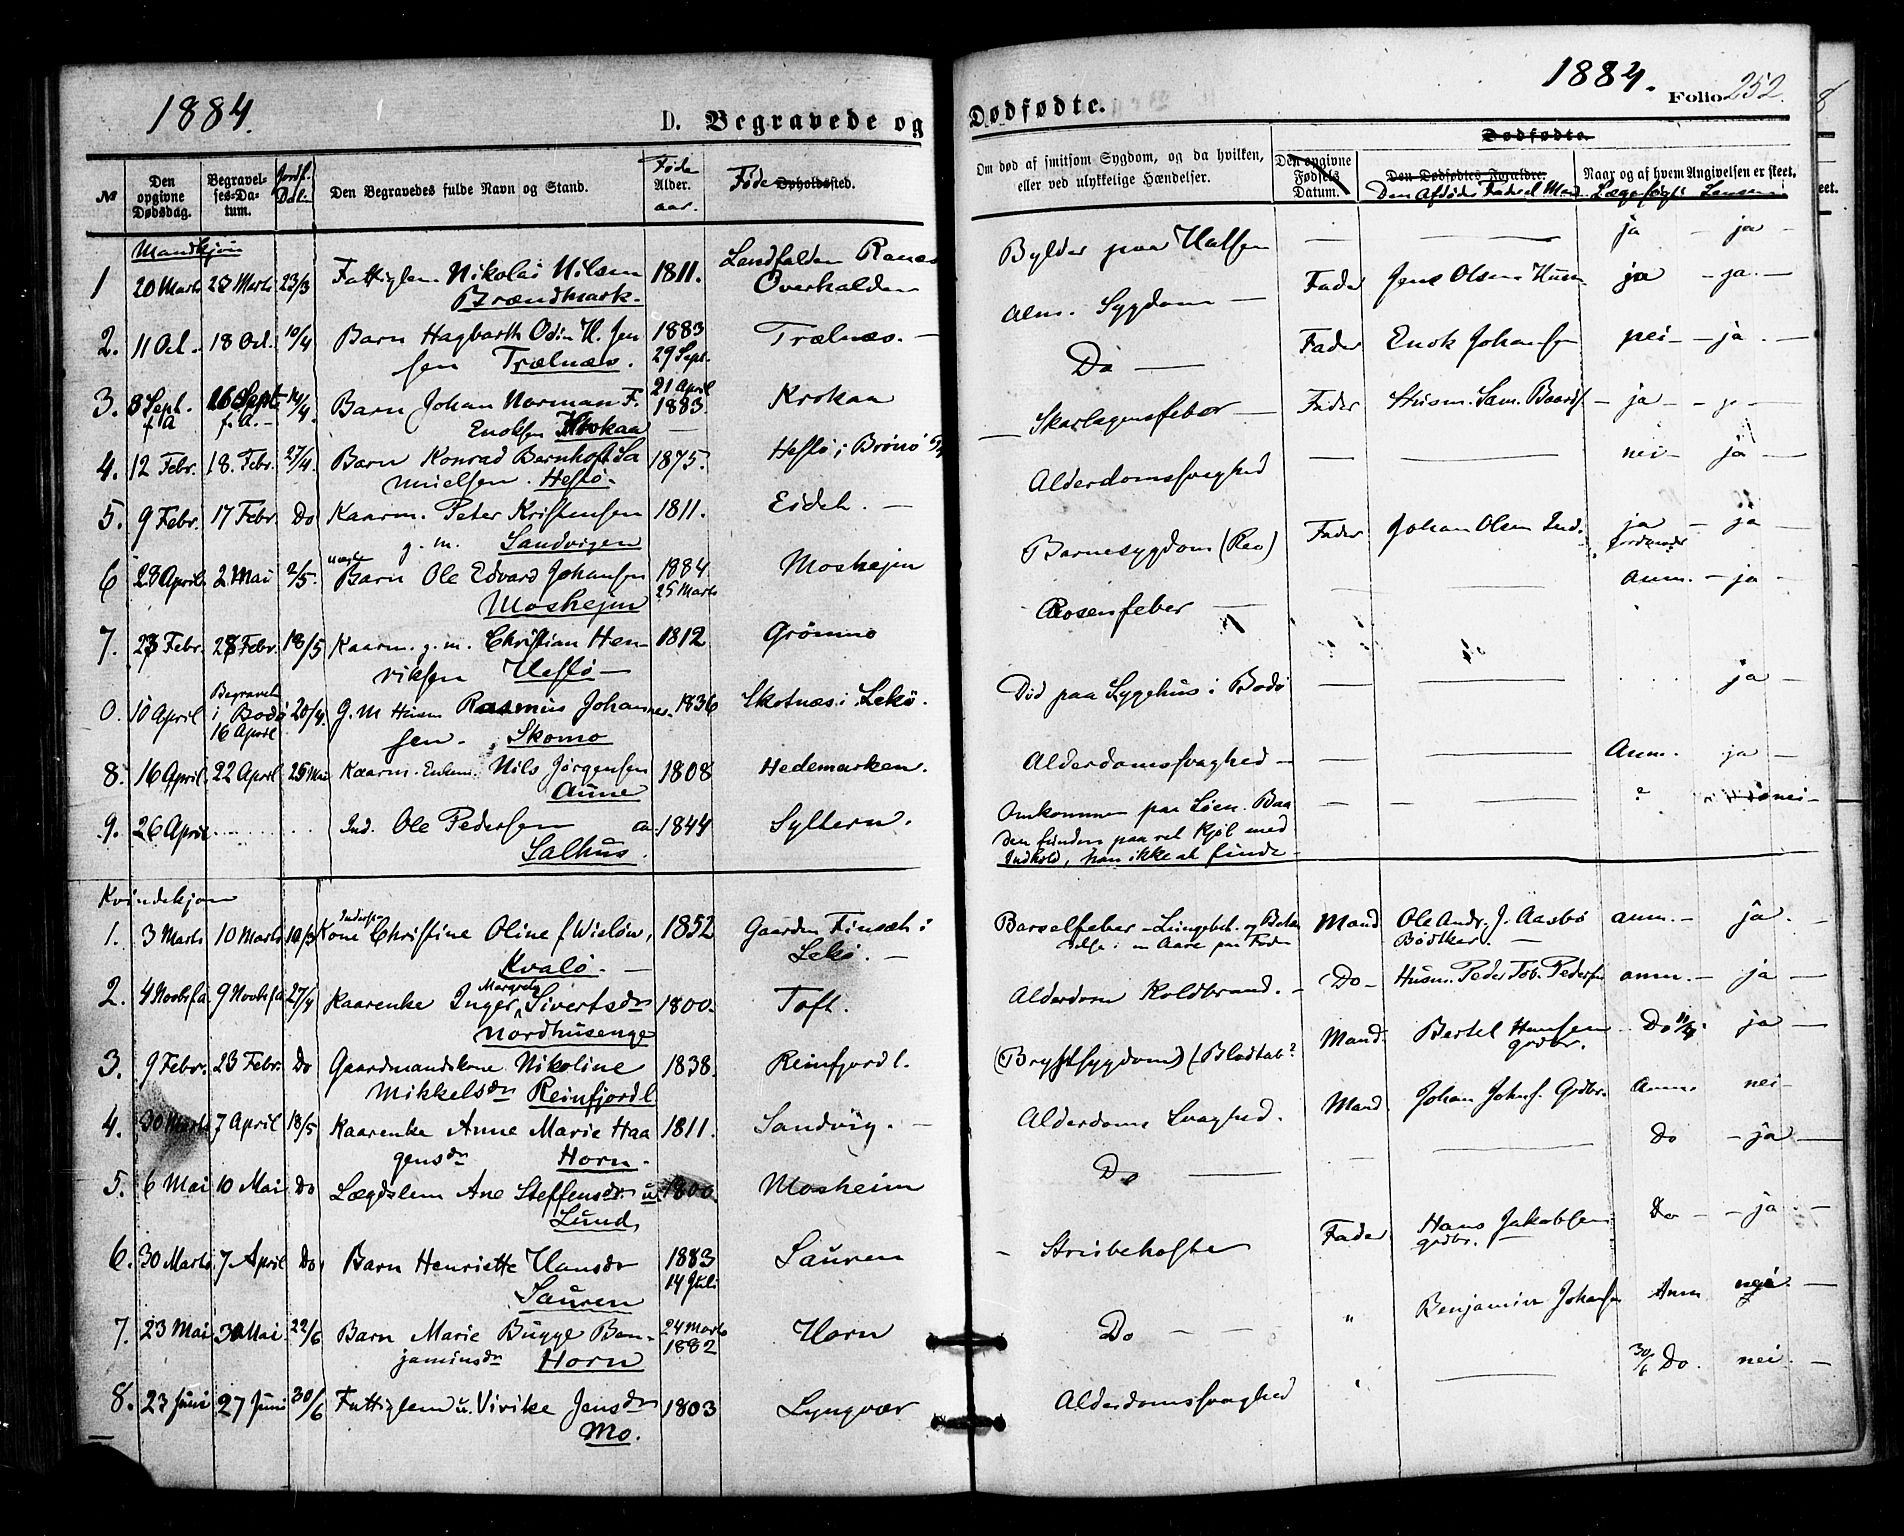 1884.
D. Begravede og
№
Den opgivne Dødsdag.
Begravelses-Datum.
Jordf. Dat.
Den Begravedes fulde Navn og Stand.
Føde
Alder.
aar.
Føde Opholdssted.
Mandkjøn
1 20 Marts 28 Marts 23/3 Fattiglem Nikolai Nilsen 1811. Overhalden
Brændmark.
2. 11 Oct. 18 Oct. 10/4 Barn Hagbarth Odin H. Jen 1883 Trælnæs. —
sen Trælnæs. 29 Sept.
3. 8 Sept. f.A. 26 Sept. f.A. 14/4. Barn Johan Norman F. 21 April 1883 Krokaa
Enoksen Krokaa
4. 12 Febr. 18. Febr. 27/4 Barn Konrad Bernhoft Sa 1875. Hestø i Brønø
muelsen. Hestø.
5. 9 Febr. 17 Febr. Do Kaarm. Peter Kristensen 1811. Eideh. —
g. m. Sandvigen
6 28 April 2 Mai 2/5. Barn Ole Edvard Johansen 1884 Moshejm
Moshejm 25 Marts
7. 23 Febr. 28 Febr. 18/5 Kaarm. g. m. Christian Hen- 1812 Grömmo
riksen Hestø —
0. 10 April Begravet i Bodø 16 April 20/4. G. M Husm Rasmus Johan 1836 Skotnæs i Lekø.
sen. Skomo
8. 16 April. 22 April 25 Mai Kaarm. Enkem. Nils Jørgensen 1808 Hedemarken.
Aune
9. 26 April Ind. Ole Pedersen ca. 1844 Syltern.
Salhus.
Kvindekjøn
1. 3 Marts 10 Marts 10/3 Kone Christine Oline f Wieløw, 1852 Gaarden Finsæt i
Kvalø. — Lekø. —
2. 4 Novbr fa 9 Novbr fa 27/4 Kaarenke Inger Margreta Sivertsdr 1800. Toft.
Nordhusenge
3. 9 Febr. 23 Febr. Do Gaardmandskone Nikoline 1838. Reinfjord l.
Mikkelsdr Reinfjord l
4. 30 Marts 7 April 18/5 Kaarenke Anne Marie Haa 1811. Sandvig. —
gensdr Horn.
5. 6 Mai 10 Mai Do Lægdslem Ane Steffensdr u. 1800. Mosheim
Lund
6. 30 Marts 7 April Do Barn Henriette Hansdr 1883 Sauren
Sauren 14 Juli
7. 23 Mai 30 Mai 22/6 Barn Marie Bugge Ben- 24 Marts 1882 Horn
jaminsdr Horn
8. 23 Juni 27 Juni 30/6 Fattiglem u. Vivike Jensdr 1803 Lyngvær
Mo.
1884. Folio 252.
Dødfødte.
Dødfødte.
Om død af smitsom Sygdom, og da hvilken, eller ved ulykkelige Hændelser.
Den opgivne Fødsels Datum.
Den Dødfødtes Forældre.
Den Afdødes Fader el. Mand.
Naar og af hvem Angivelsen er skeet.
Bylder paa Halsen — — ja — ja —
Alm. Sygdom — Fader Jens Olsen Husm. ja — ja. —
Do — Fader Enok Johansen nei — ja. —
Skarlagensfeber — Fader Husm. Sam. Baards — ja —
Alderdomssvaghed — — nei — ja —
Barnesygdom (Reo) Fader Johan Olsen Ind. ja — ja —
Rosenfeber — — Anm. — ja —
Död paa Sygehus i Bodø — — ja
Alderdomssvaghed — — — Anm. ja —
Omkommen paa Søen. Baa — — — ? nei —
den funden paa ret Kjöl med
Indhold, han ikke at finde —
Barselfeber — Lungebet. og Betæn Mand Ole Andr. J. Aasbø Bödtker. — anm. — ja. —
delse i en Aare paa Foden
Alderdom Koldbrand. — Do — Husm. Peder Tob. Pedersen anm. — ja —
(Brystsygdom) (Blodtab? Mand. Bertel Hansen grdbr. Do ja —
Alderdoms Svaghed. Mand. Johan Johns. Grdbr. Anm. nei —
Do — — Do — ja —
Strubehoste Fader Hans Jakobsen grdbr. Do — — ja —
Do — — " Benjamin Johansen Anm —
Alderdomssvaghed — 30/6 Do. nei. —